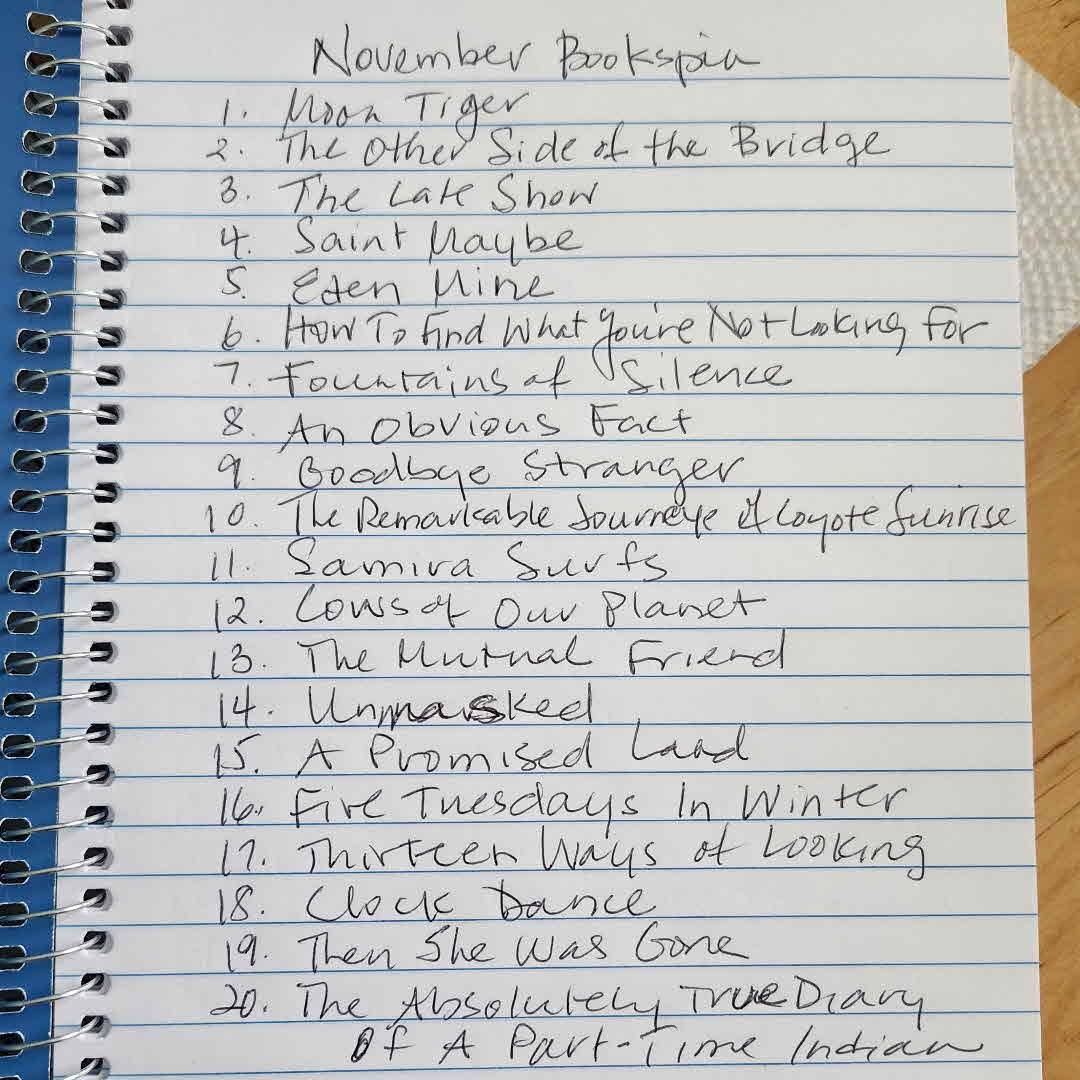 November Bookspin
1. Moon Tiger
2. The Other Side of the Bridge
3. The Late Show
4. Saint Maybe
5. Eden Mine
6. How To Find What You're Not Looking For
7. Fountains of Silence
8. An Obvious Fact
9. Goodbye Stranger
10. The Remarkable Journeye of Coyote Sunrise
11. Samira Surfs
12. Cows of Our Planet
13. The Mutual Friend
14. Unmasked
15. A Promised Land
16. Five Tuesdays In Winter
17. Thirteen Ways of Looking
18. Clock Dance
19. Then She Was Gone
20. The Absolutely True Diary
Of A Part-Time Indian